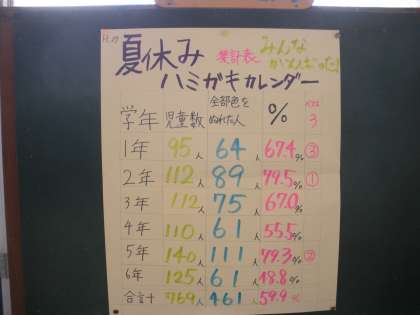 H.17
夏休み 集計表 みんな
ハミガキカレンダー
学年 児童数 全部色をぬれた人 % ベスト3
1年 95人 64人 67.4% ③
2年 112人 89人 79.5% ①
3年 112人 75人 67.0%
4年 110人 61人 55.5%
5年 140人 111人 79.3% ②
6年 125人 61人 48.8%
合計 769人 461人 59.9%